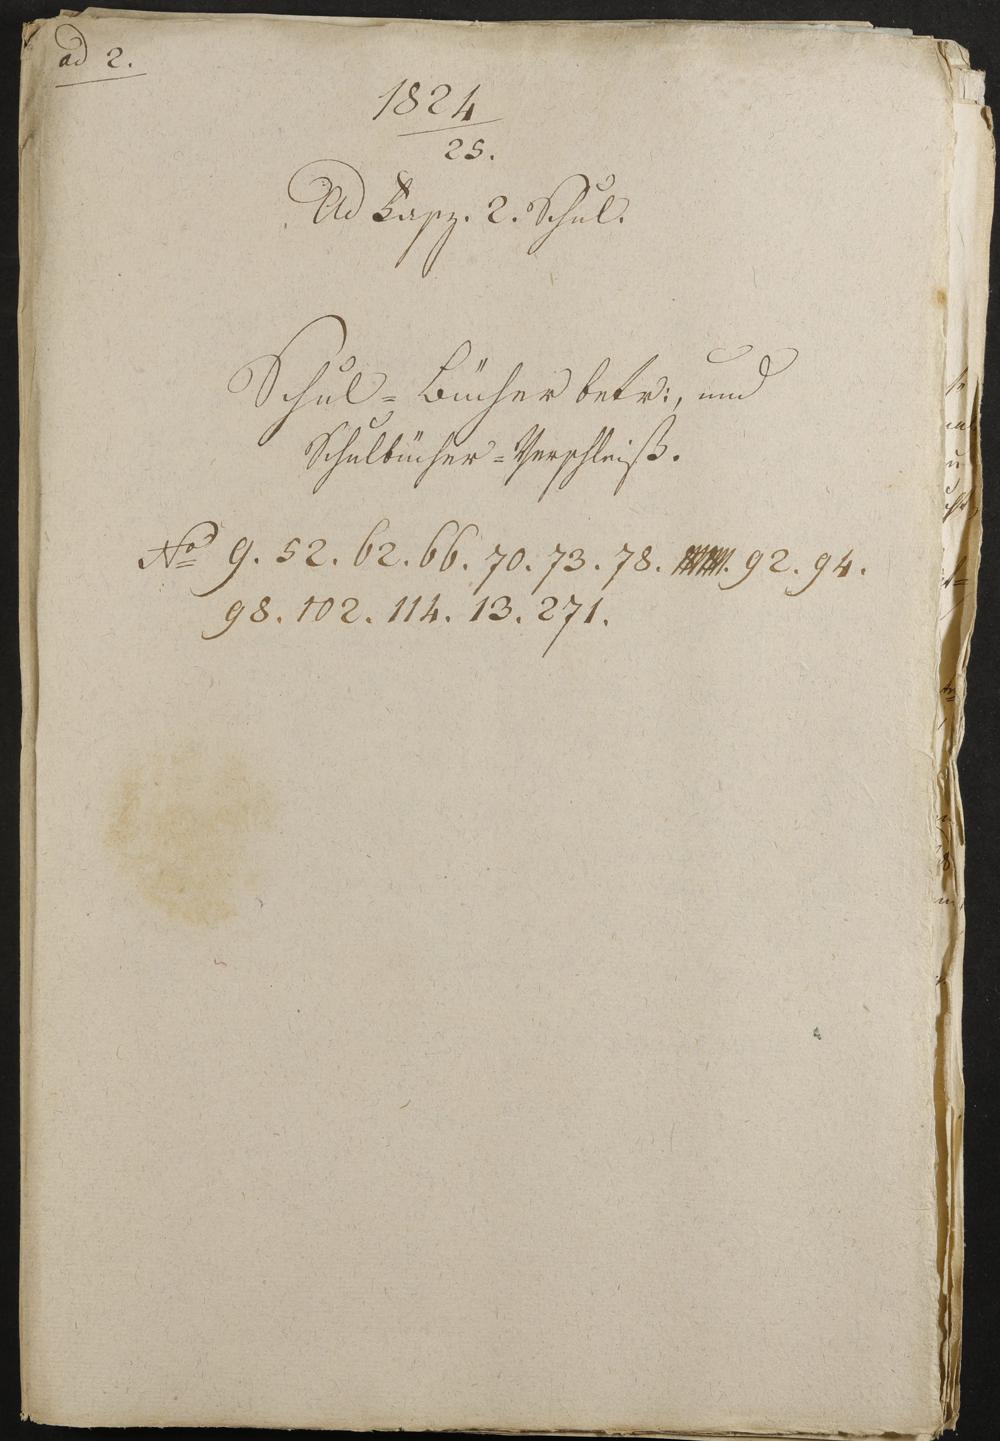 ad 2.
1824
25.
Ad Fasz. 2. Schul.
Schul-Bücher betr:, und
Schulbücher-Verschleiß.
No 9. 52. 62. 66. 70. 73. 78. 92. 94.
98. 102. 114. 13. 271.